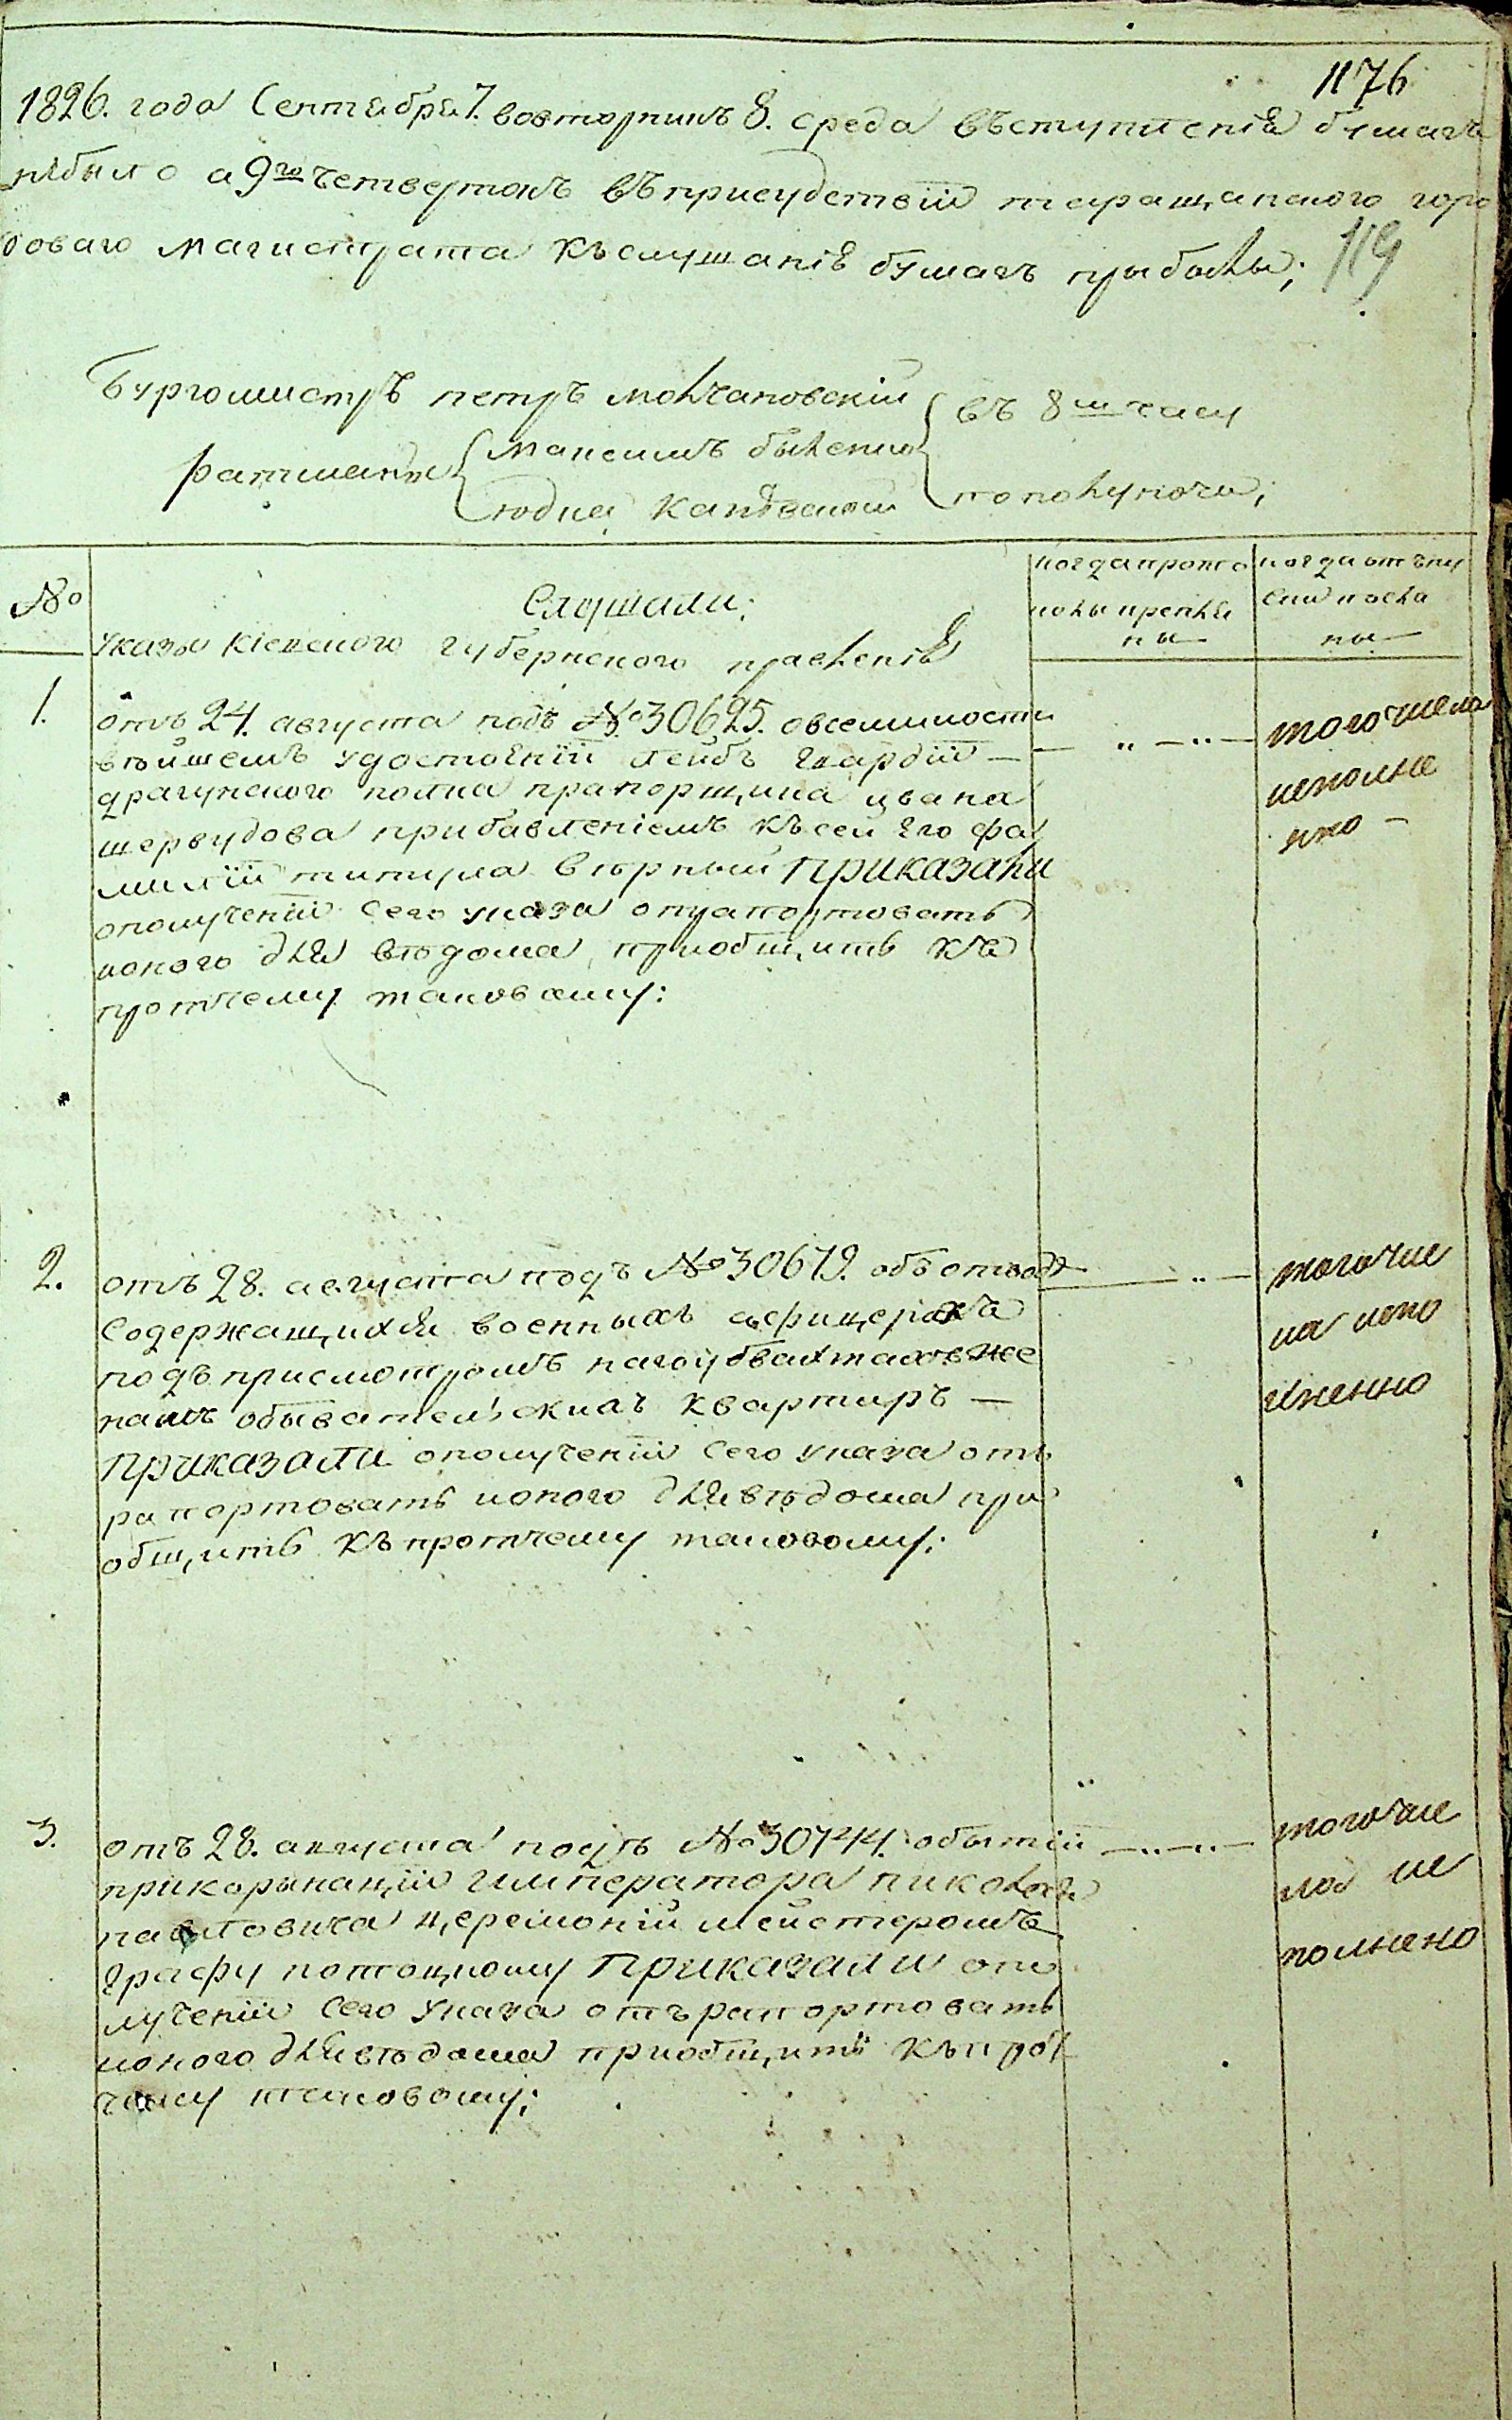 1176
1826. года Сентября 7. вовторникъ 8. среда въступления бумагъ
небыло а 9го четвертокъ въ присудствіи таращанского горо
доваго магистрата къслушанію бумагъ прыбыли;
119
Бургомистръ петръ молчановскій
въ 8м часу
ратманы
максимъ
юдка каневскій
пополуночи;
№
Слушали:
когда прото
колы крепле
ны
когда отъпу
ски посла
ны
указы кіевского губернского правленія
1.
отъ 24. августа подъ №30625. овсемилости
вѣйшемъ удостоеніи лейбъ гвардіи
драгунского полка прапорщика ивана
шервудова прибавленіемъ къ сей его фа
миліи титула вѣрный приказали
ополученіи сего указа отрапортовать
ионого для вѣдома приобщить къ
протчему таковому:
тогочисла
исполне
нно
2.
отъ 28. августа подъ №30679. объ отводѣ
содержащихся военныхъ афицерахъ
подъ присмотромъ нагоубвахтахъ же
намъ обывательскихъ квартиръ
приказали ополученіи сего указа отъ
рапортовать ионого для вѣдома при
общить къ протчему таковому:
тогочис
ла испо
лненно
3.
отъ 28. августа подъ №30744. обытіи
прикоронаціи императора николая
павловича церемоніймейстеромъ
графу потоцкому приказали опо
лученіи сего указа отърапортовать
ионого для вѣдома приобщить къ прот
чему таковому;
тогочис
ла ис
полнено